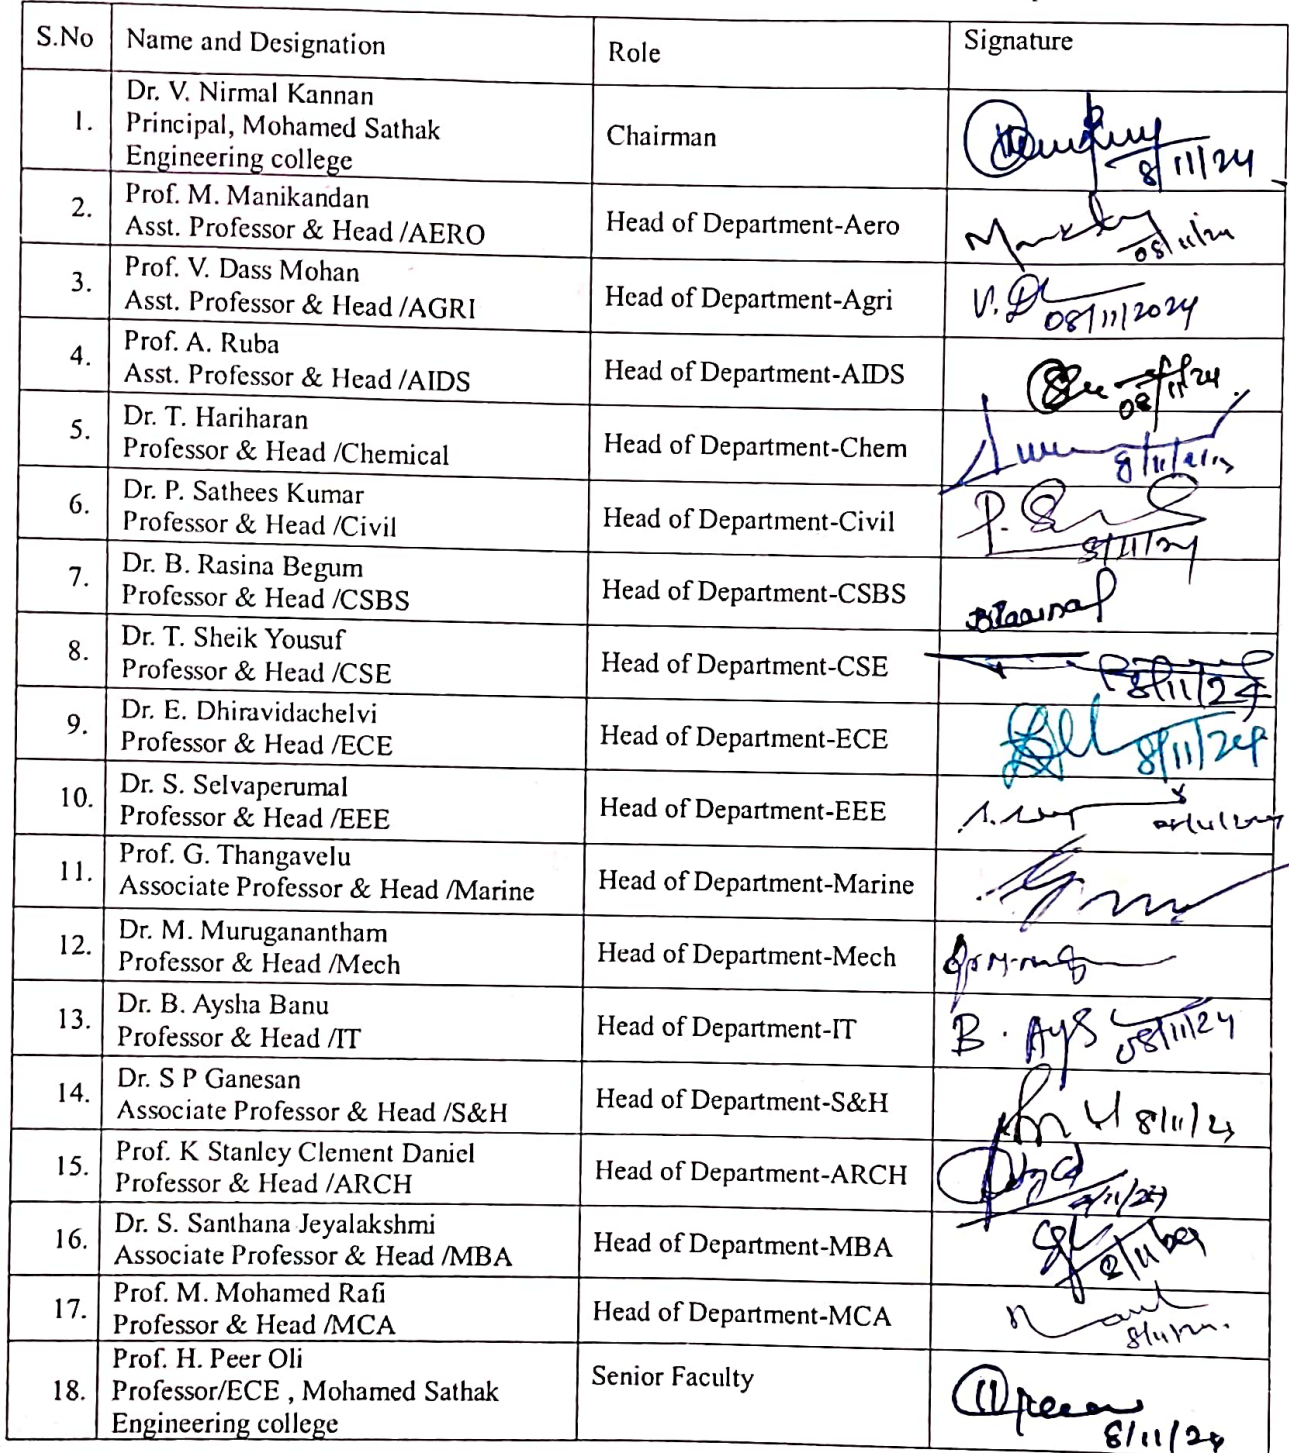 S.No Name and Designation Role Signature
1. Dr. V. Nirmal Kannan
Principal, Mohamed Sathak
Engineering college
Chairman
8/11/24
2. Prof. M. Manikandan
Asst. Professor & Head /AERO
Head of Department-Aero
3. Prof. V. Dass Mohan
Asst. Professor & Head /AGRI
Head of Department-Agri
08/11/2024
4. Prof. A. Ruba
Asst. Professor & Head /AIDS
Head of Department-AIDS
08/11/24
5. Dr. T. Hariharan
Professor & Head /Chemical
Head of Department-Chem
6. Dr. P. Sathees Kumar
Professor & Head /Civil
Head of Department-Civil
8/11/24
7. Dr. B. Rasina Begum
Professor & Head /CSBS
Head of Department-CSBS
8. Dr. T. Sheik Yousuf
Professor & Head /CSE
Head of Department-CSE
8/11/24
9. Dr. E. Dhiravidachelvi
Professor & Head /ECE
Head of Department-ECE
8/11/24
10. Dr. S. Selvaperumal
Professor & Head /EEE
Head of Department-EEE
11. Prof. G. Thangavelu
Associate Professor & Head /Marine
Head of Department-Marine
12. Dr. M. Muruganantham
Professor & Head /Mech
Head of Department-Mech
13. Dr. B. Aysha Banu
Professor & Head /IT
Head of Department-IT
B. Ays 08/11/24
14. Dr. S P Ganesan
Associate Professor & Head /S&H
Head of Department-S&H
15. Prof. K Stanley Clement Daniel
Professor & Head /ARCH
Head of Department-ARCH
16. Dr. S. Santhana Jeyalakshmi
Associate Professor & Head /MBA
Head of Department-MBA
17. Prof. M. Mohamed Rafi
Professor & Head /MCA
Head of Department-MCA
18. Prof. H. Peer Oli
Professor/ECE , Mohamed Sathak
Engineering college
Senior Faculty
8/11/24